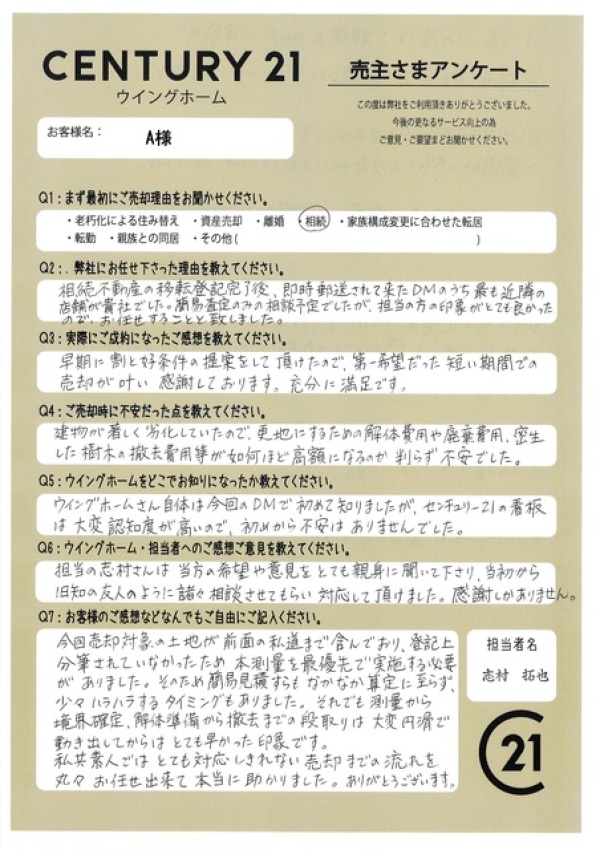 CENTURY 21
ウイングホーム
売主さまアンケート
この度は弊社をご利用頂きありがとうございました。
今後の更なるサービス向上の為
ご意見・ご要望までお聞かせください。
お客様名： A様
Q1：まず最初にご売却理由をお聞かせください。
・老朽化による住み替え ・資産売却 ・離婚 ・相続 ・家族構成変更に合わせた転居
・転勤 ・親族との同居 ・その他( )
Q2：. 弊社にお任せ下さった理由を教えてください。
相続不動産の移転登記完了後、即時郵送されて来たDMのうち最も近隣の
店舗が貴社でした。簡易査定のみの相談予定でしたが、担当の方の印象がとても良かった
ので、お任せすることと致しました。
Q3：実際にご成約になったご感想を教えてください。
早期に割と好条件の提案をして頂けたので、第一希望だった短い期間での
売却が叶い感謝しております。充分に満足です。
Q4：ご売却時に不安だった点を教えてください。
建物が著しく劣化していたので、更地にするための解体費用や廃棄費用、密生
した樹木の撤去費用等が如何ほど高額になるのか判らず不安でした。
Q5：ウイングホームをどこでお知りになったか教えてください。
ウイングホームさん自体は今回のDMで初めて知りましたが、センチュリー21の看板
は大変認知度が高いので、初めから不安はありませんでした。
Q6：ウイングホーム・担当者へのご感想ご意見を教えてください。
担当の志村さんは当方の希望や意見をとても親身に聞いて下さり、当初から
旧知の友人のように諸々相談させてもらい対応して頂けました。感謝しかありません。
Q7：お客様のご感想などなんでもご自由にご記入ください。
今回売却対象の土地が前面の私道まで含んでおり、登記上
分筆されていなかったため本測量を最優先で実施する必要
がありました。そのため簡易見積すらもなかなか算定に至らず、
少々ハラハラするタイミングもありました。それでも測量から
境界確定、解体準備から撤去までの段取りは大変円滑で
動き出してからはとても早かった印象です。
私共素人ではとても対応しきれない売却までの流れを
丸々お任せ出来て本当に助かりました。ありがとうございます。
担当者名
志村 拓也
C21